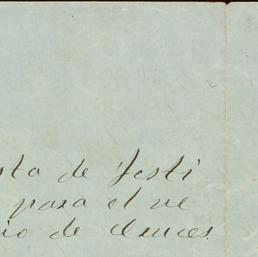 sta de Festi
para el ve
io de Cruces.